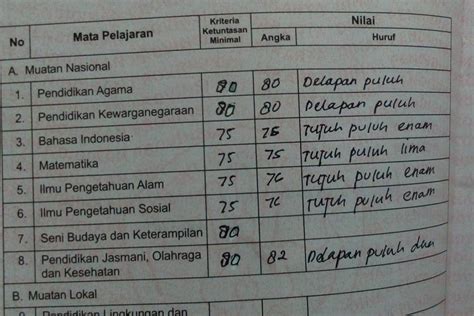 No Mata Pelajaran Kriteria Ketuntasan Minimal Nilai
Angka Huruf
A. Muatan Nasional
1. Pendidikan Agama 80 80 Delapan puluh
2. Pendidikan Kewarganegaraan 80 80 Delapan puluh
3. Bahasa Indonesia 75 76 tujuh puluh enam
4. Matematika 75 75 tujuh puluh lima
5. Ilmu Pengetahuan Alam 75 76 tujuh puluh enam
6. Ilmu Pengetahuan Sosial 75 76 tujuh puluh enam
7. Seni Budaya dan Keterampilan 80
8. Pendidikan Jasmani, Olahraga 80 82 Delapan puluh dua
dan Kesehatan
B. Muatan Lokal
Pendidikan Lingkungan dan